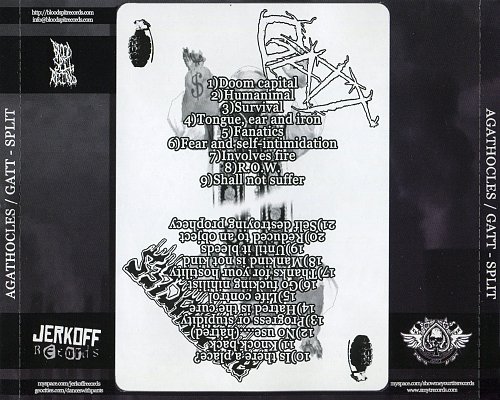 http://bloodspitrecords.com
info@bloodspitrecords.com
BLOOD
SPIT
RECORDS
AGATHOCLES / GATT - SPLIT
JERKOFF
RECORDS
myspace.com/jerkoffrecords
geocities.com/danceswithpants
$
GATT
1)Doom capital
2)Humanimal
3)Survival
4)Tongue, ear and iron
5)Fanatics
6)Fear and self-intimidation
7)Involves fire
8)R.O.W.
9)Shall not suffer
10)Is there a place?
11)Knock back
12)NO use...(hatred)
13)Progress or stupidity
14)Hatred is the cure
15)Life control
16)Go fucking nihilist
17)Thanks for your hostility
18)Mankind is not kind
19)Until it bleeds
20)Reduced to an object
21)Self destroying prophecy
AGATHOCLES / GATT - SPLIT
myspace.com/showmeyourtitsrecords
www.smytrecords.com